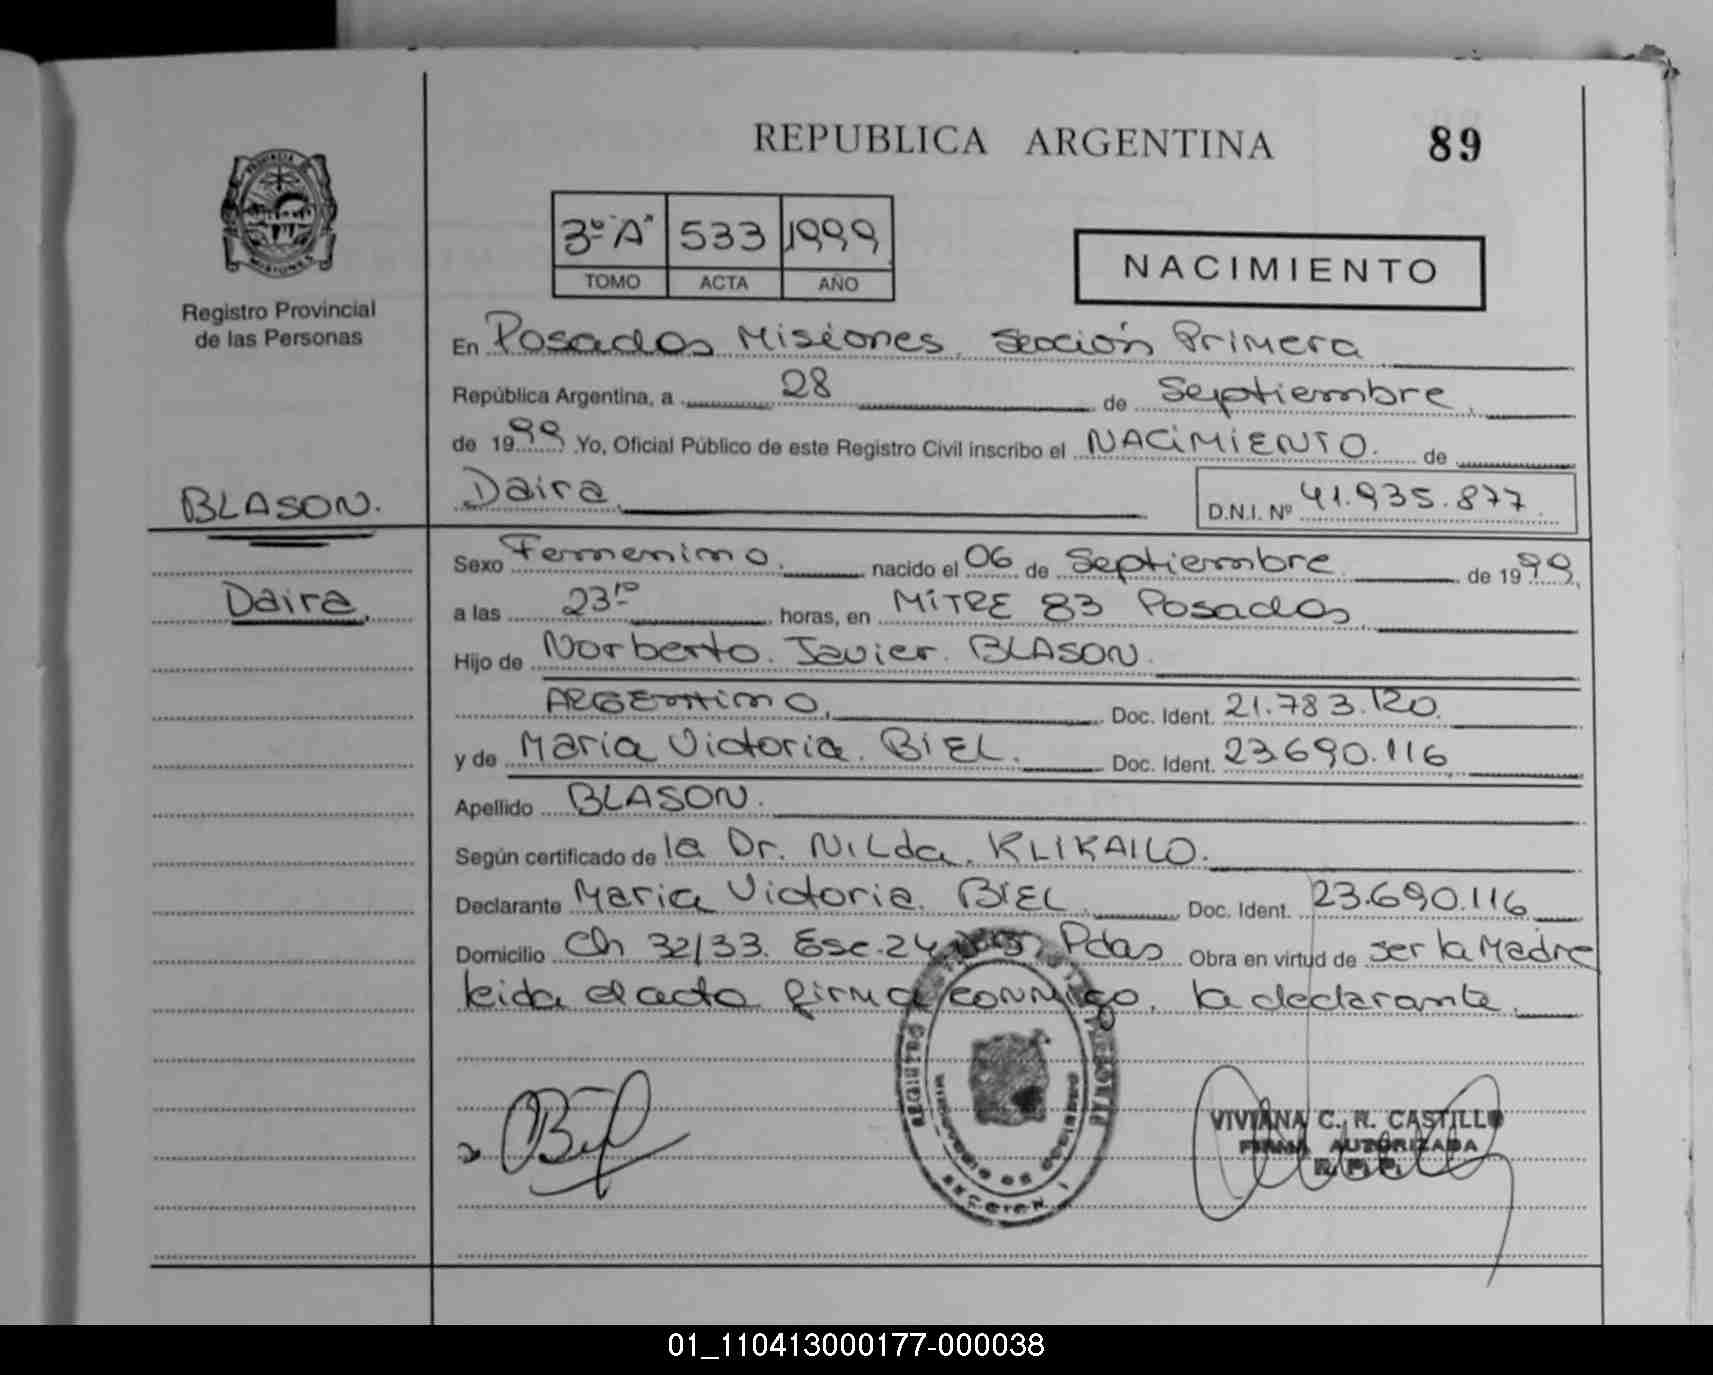 REPUBLICA ARGENTINA
89
PROVINCIA
MISIONES
Registro Provincial
de las Personas
3º "A" 533 1999
TOMO ACTA AÑO
NACIMIENTO
En Posadas Misiones, Sección Primera
República Argentina, a 28 de Septiembre
de 1999 Yo, Oficial Público de este Registro Civil inscribo el NACIMIENTO. de
BLASON.
Daira
D.N.I. Nº 41.935.877
Sexo Femenino. nacido el 06 de Septiembre de 1999,
Daira.
a las 23¹⁰ horas, en MITRE 83 Posadas
Hijo de Norberto Javier BLASON.
ARGENTINO, Doc. Ident. 21.783.120.
y de Maria Victoria BIEL. Doc. Ident. 23.690.116
Apellido BLASON.
Según certificado de la Dr. NILda KLIKAILO.
Declarante Maria Victoria BIEL Doc. Ident. 23.690.116
Domicilio Ch 32/33. Esc. 24 Pdas Obra en virtud de ser la Madre
leida el acta firma conmigo, la declarante.
VIVIANA C. R. CASTILLO
FIRMA AUTORIZADA
R. P. P.
MINISTERIO DE GOBIERNO
SECCION 1
01_110413000177-000038